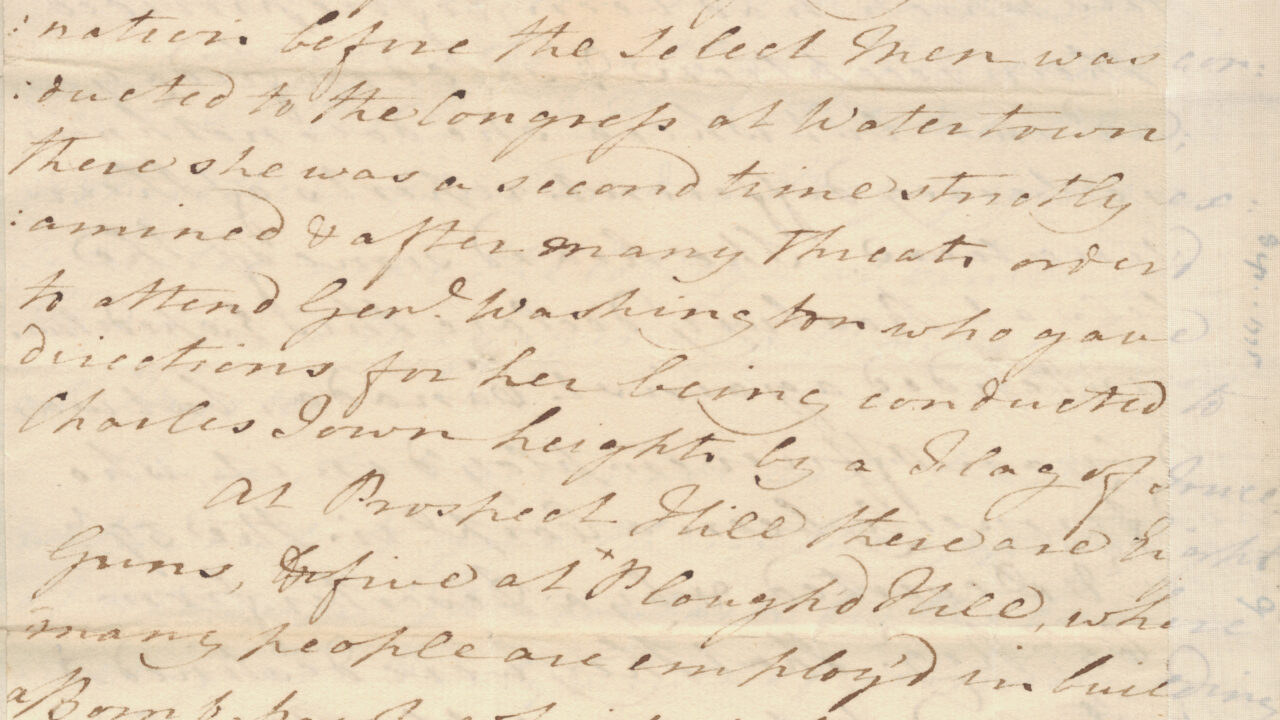 :nation before the Select Men was con:
:ducted to the Congress at Watertown
there she was a second time strictly ex:
:amined & after many Threats order
to attend Genl. Washington who gave
directions for her being conducted to
Charles Town heights by a Flag of Truce
At Prospect Hill there are Eight
Guns, & five at Plough'd Hill, where
many people are employ'd in buil ding
a Bomb